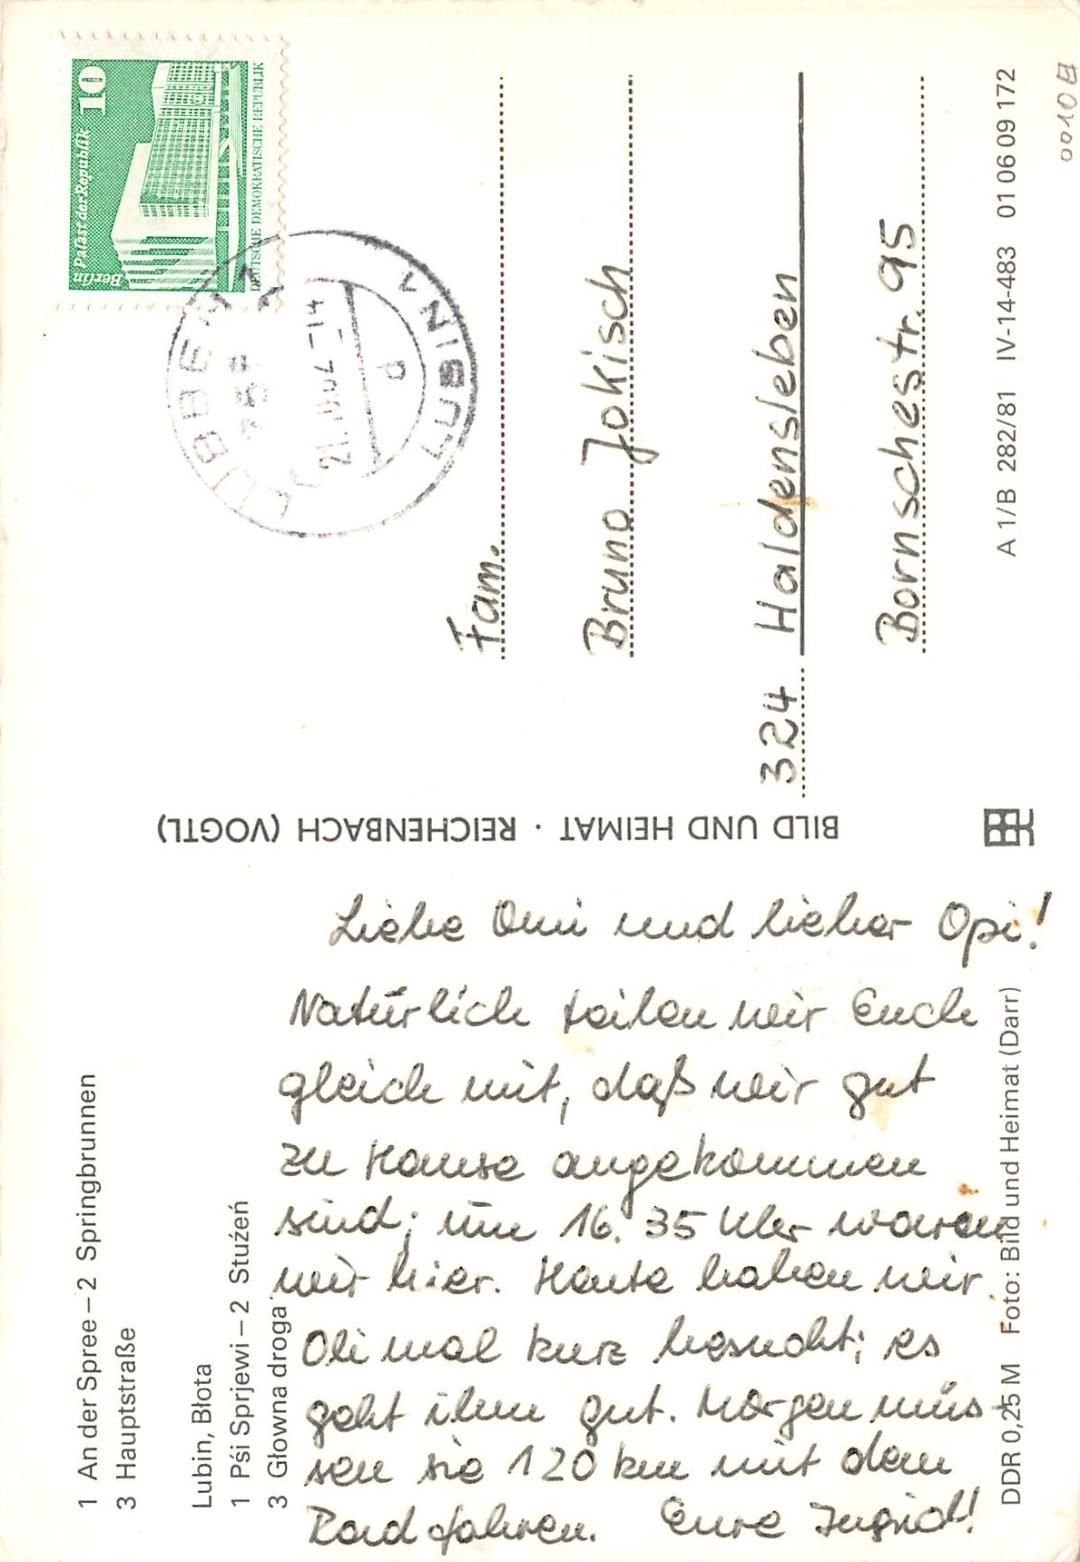 1 An der Spree – 2 Springbrunnen
3 Hauptstraße
Lubin, Błota
1 Pśi Sprjewi – 2 Stuźeń
3 Głowna droga
Liebe Omi und lieber Opi!
Natürlich teilen wir Euch
gleich mit, daß wir gut
zu Hause angekommen
sind; um 16.35 Uhr waren
wir hier. Heute haben wir
Oli mal kurz besucht; es
geht ihm gut. Morgen müs-
sen sie 120 km mit dem
Rad fahren. Eure Ingrid!
DDR 0,25 M Foto: Bild und Heimat (Darr)
BILD UND HEIMAT · REICHENBACH (VOGTL)
10
Palast der Republik
Berlin
DEUTSCHE DEMOKRATISCHE REPUBLIK
LÜBBEN 1
-14
LUBIN
Fam.
Bruno Jokisch
324 Haldensleben
Bornschestr. 95
A 1/B 282/81 IV-14-483 01 06 09 172